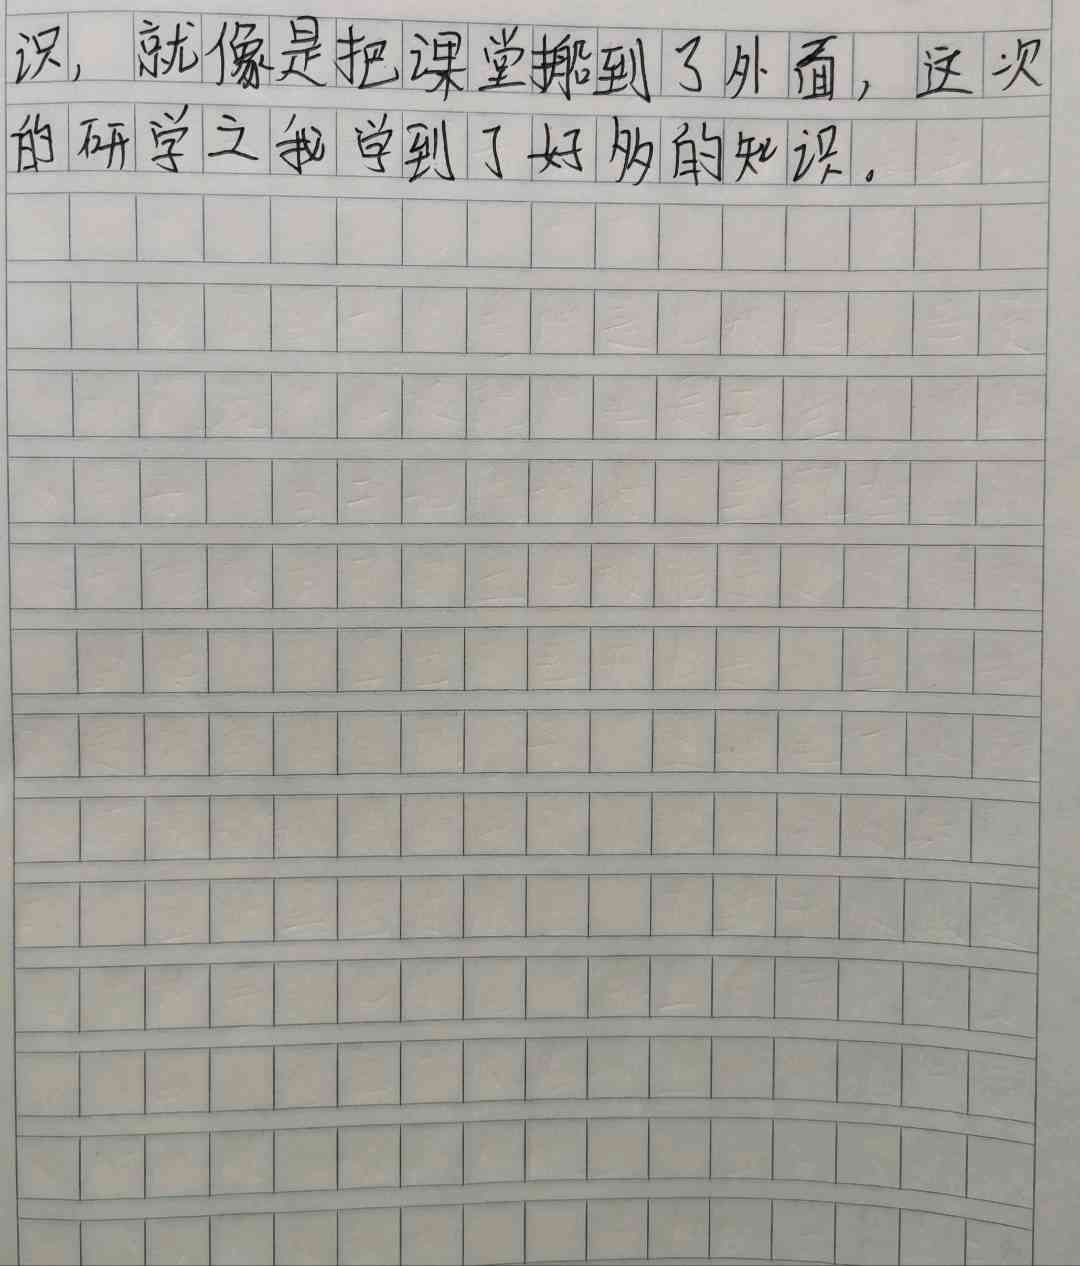 识，就像是把课堂搬到了外面，这次
的研学之我学到了好多的知识。